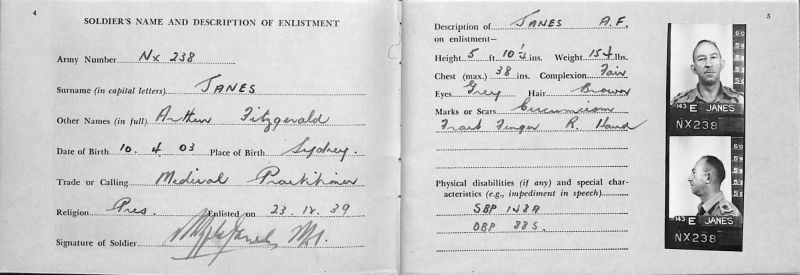 4
SOLDIER'S NAME AND DESCRIPTION OF ENLISTMENT
Army Number NX 238
Surname (in capital letters) JANES
Other Names (in full) Arthur Fitzgerald
Date of Birth 10. 4 03 Place of Birth Sydney.
Trade or Calling Medical Practitioner
Religion Pres. Enlisted on 23.12.39
Signature of Soldier
5
Description of JANES A.F.
on enlistment—
Height 5 ft. 10¼ ins. Weight 154 lbs.
Chest (max.) 38 ins. Complexion Fair
Eyes Grey Hair Brown
Marks or Scars Circumcision
Finger R. Hand
Physical disabilities (if any) and special char-
acteristics (e.g., impediment in speech)
SBP 148A
DBP 88S.
143 E JANES
NX238
143 E JANES
NX238